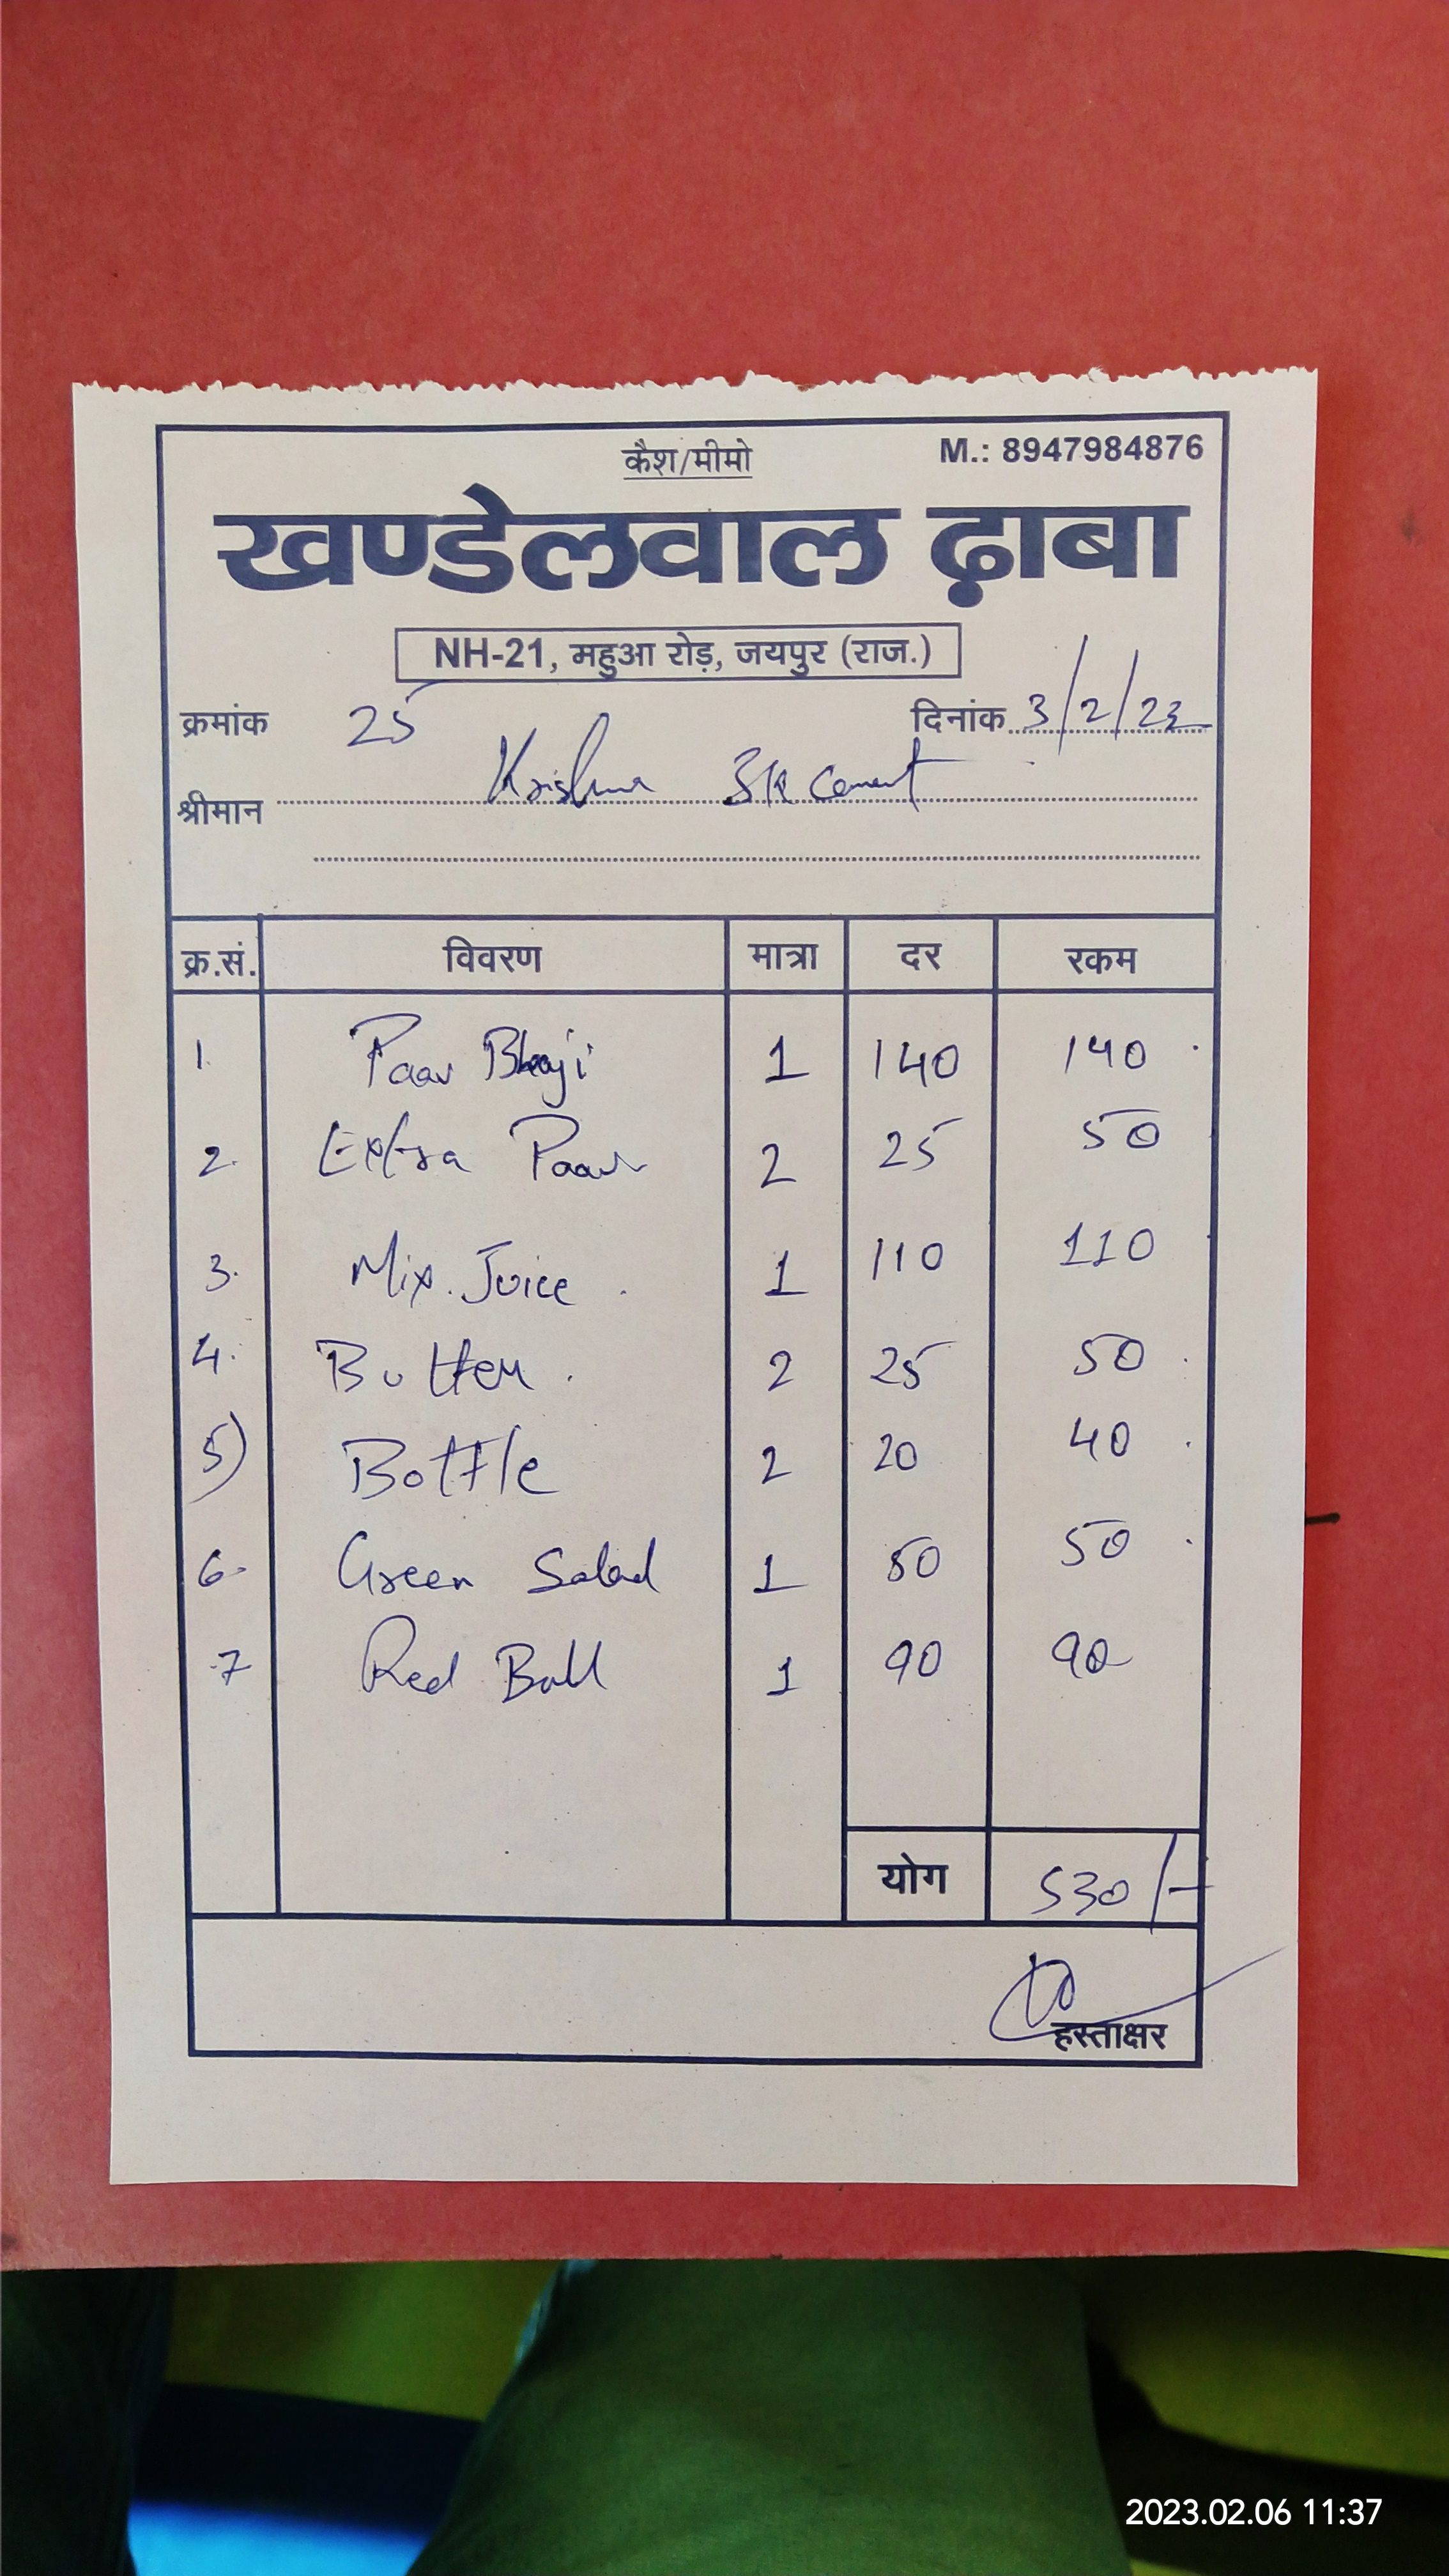 कैश/मीमो M.: 8947984876
खण्डेलवाल ढ़ाबा
NH-21, महुआ रोड़, जयपुर (राज.)
क्रमांक 25 दिनांक 3/2/23
श्रीमान Krishna Cement
क्र.सं. विवरण मात्रा दर रकम
1. Paav Bhaji 1 140 140
2. Extra Paav 2 25 50
3. Mix. Juice 1 110 110
4. Butter 2 25 50
5) Bottle 2 20 40
6. Green Salad 1 50 50
7 Red Bull 1 90 90
योग 530/-
हस्ताक्षर
2023.02.06 11:37